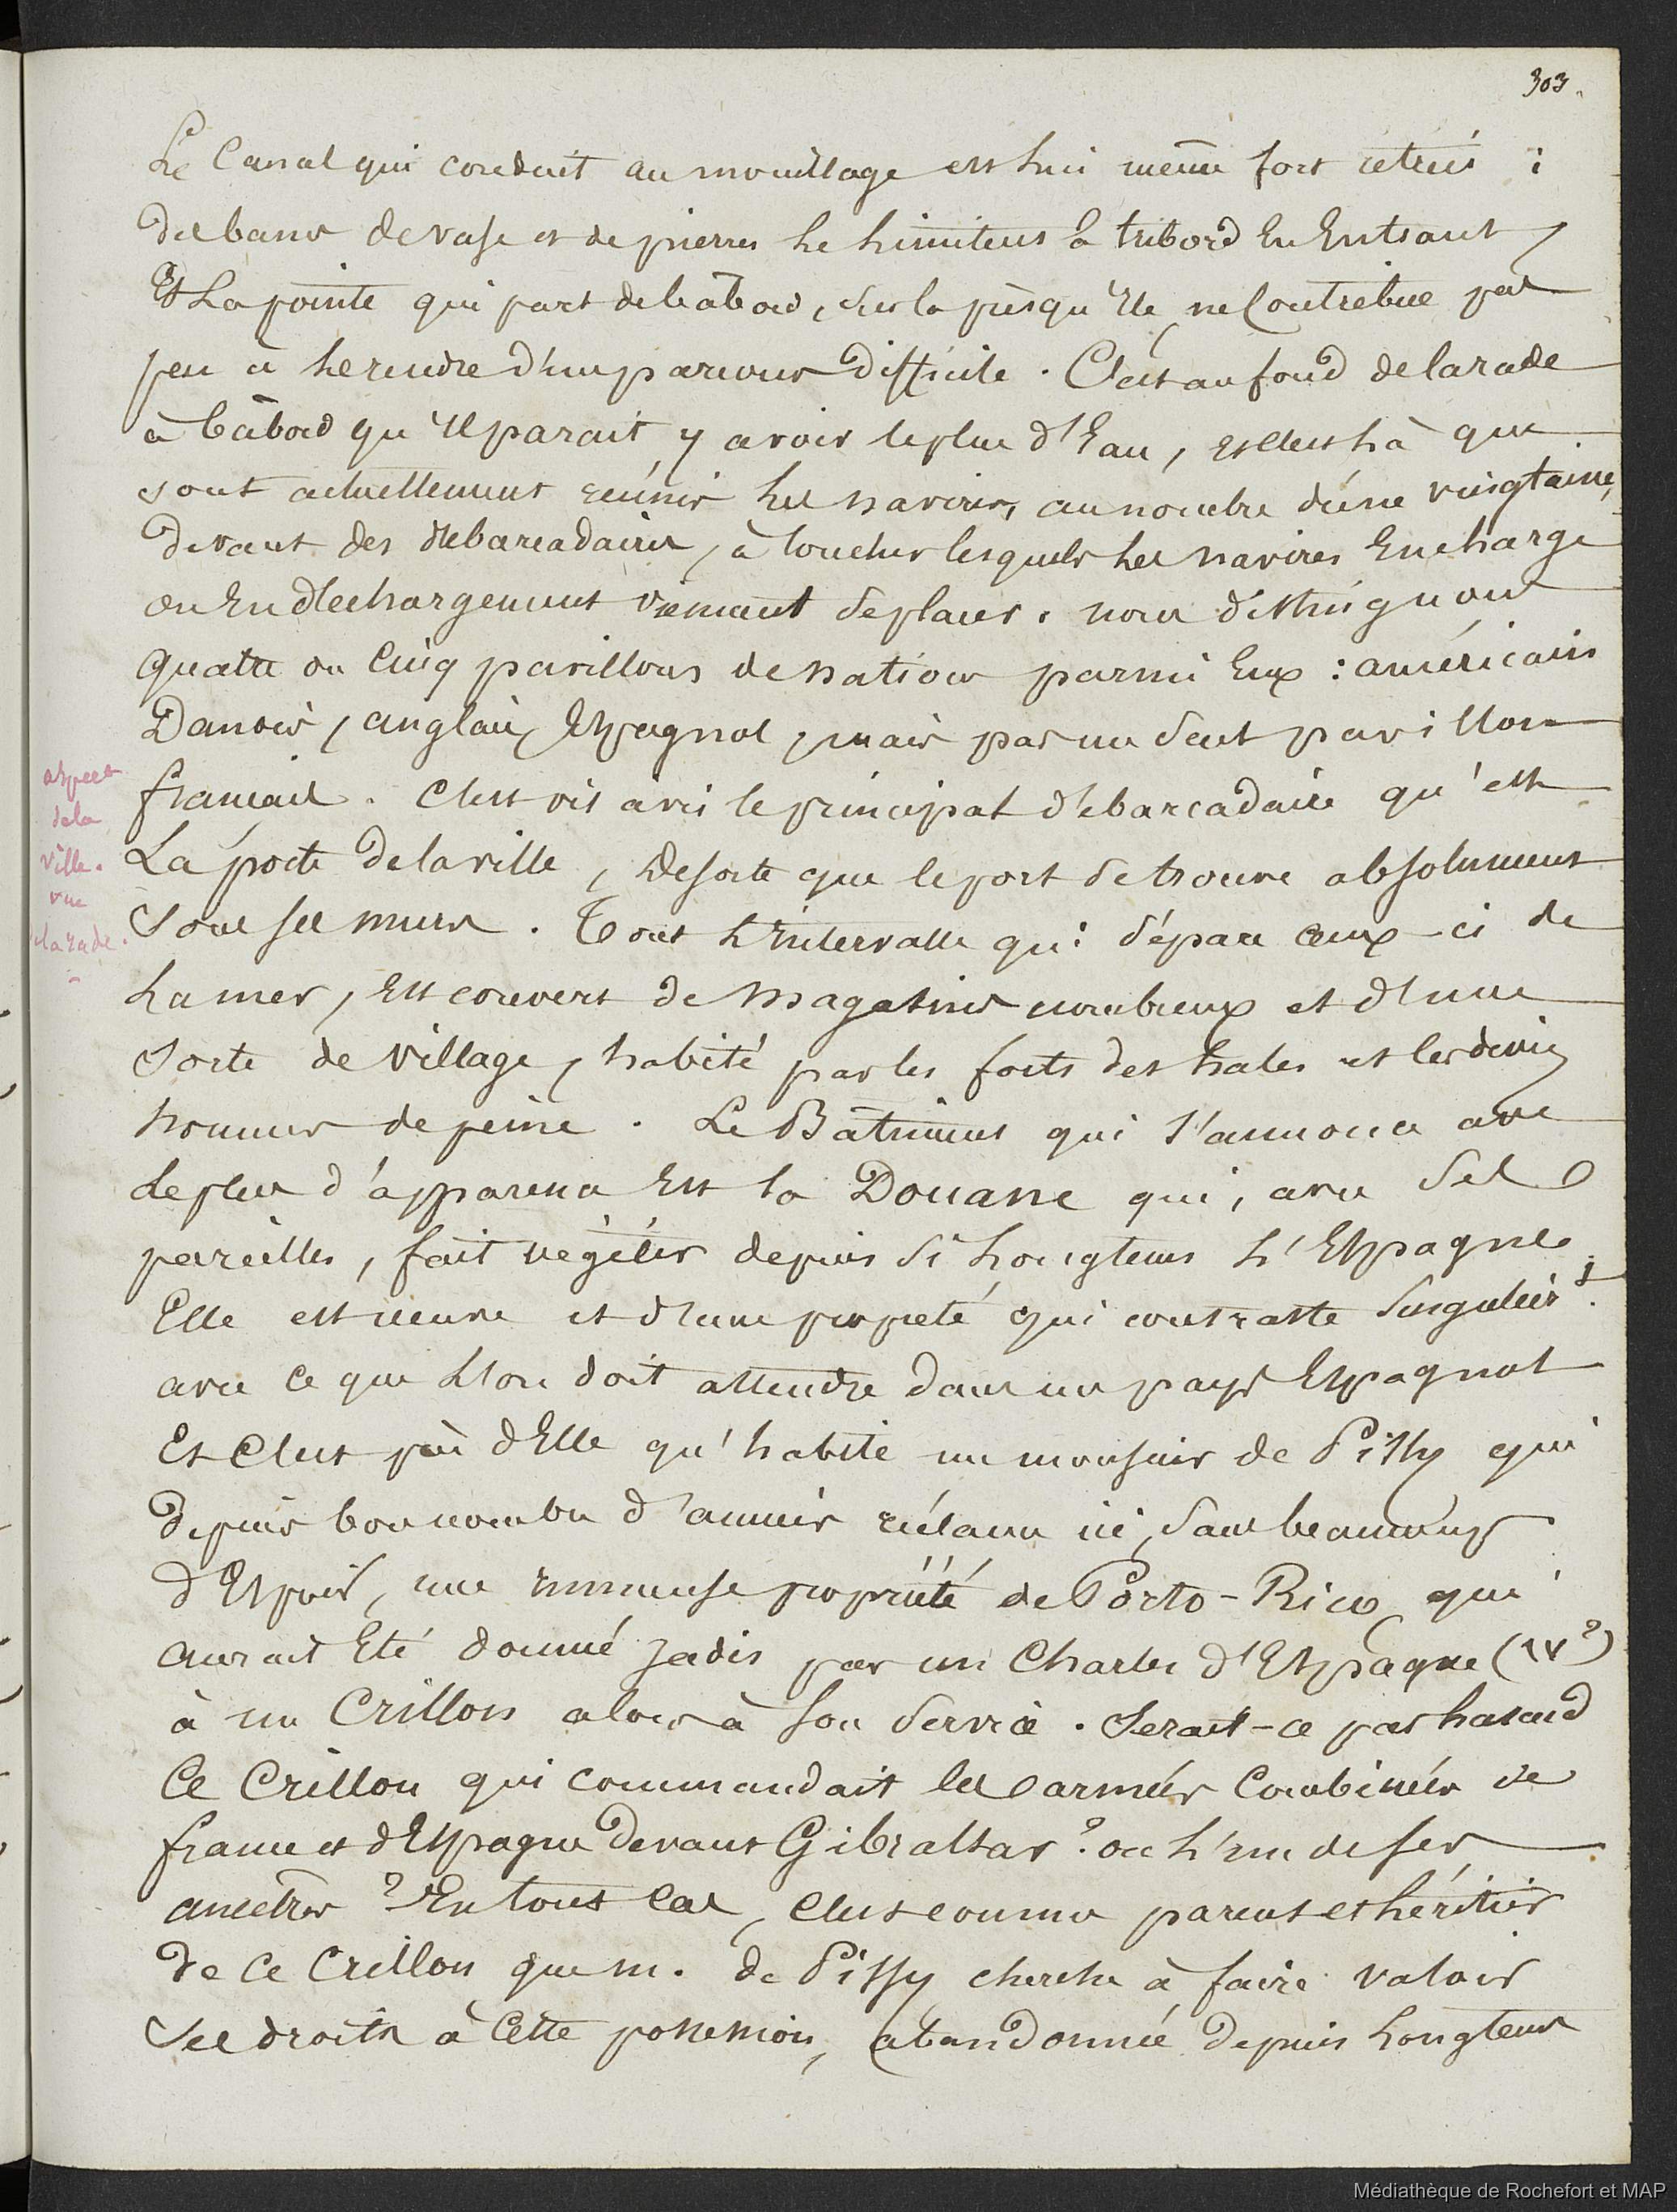 303.
Le Canal qui conduit au mouillage est lui même fort rétréci :
des bancs de vase et de pierres le limitent à tribord En Entrant,
Et La pointe qui part de bâbord, sur la presqu'Ile ne Contribue pas
peu à le rendre d'un parcours difficile. C'est au fond de la rade
à bâbord qu'Il parait y avoir le plus d'Eau, et c'est là que
sont actuellement réunis les navires, au nombre d'une vingtaine,
devant des débarcadaires, à toucher lesquels les navires En charge
ou En déchargement viennent se placer. nous distinguons
quatre ou Cinq pavillons de nation parmi Eux : américain
Danois, anglais, Espagnol, mais pas un seul pavillon
français. C'est vis à vis le principal débarcadaire qu'est
La porte de la ville, de sorte que le port se trouve absolument
sous ses murs. Tout L'Intervalle qui sépare ceux-ci de
La mer, Est couvert de magasins nombreux et d'une
sorte de village, habité par les forts des hales et les divers
hommes de peine. Le Bâtiment qui s'annonce avec
le plus d'apparence Est la Douane qui, avec ses
pareilles, fait végéter depuis si Longtems L'Espagne.
Elle est neuve et d'une propreté qui contraste singulièrt.
avec ce que L'on doit attendre dans un pays Espagnol
Et C'est près d'Elle qu'habite un monsieur de Pissy qui
depuis bon nombre d'années réclame ici, sans beaucoup
d'Espoir, une immense propriété de Porto-Rico, qui
aurait Eté donné jadis par un Charles d'Espagne (IV?)
à un Crillon alors à son service. Serait-ce par hasard
Ce Crillon qui commandait les armées Combinées de
france et d'Espagne devant Gibraltar ? ou L'un de ses
ancêtres ? En tout Cas, C'est comme parent et héritier
de Ce Crillon que m. de Pissy cherche à faire valoir
ses droits à Cette possession, abandonnée depuis Longtems
aspect
de la
ville.
vue
la rade.
Médiathèque de Rochefort et MAP